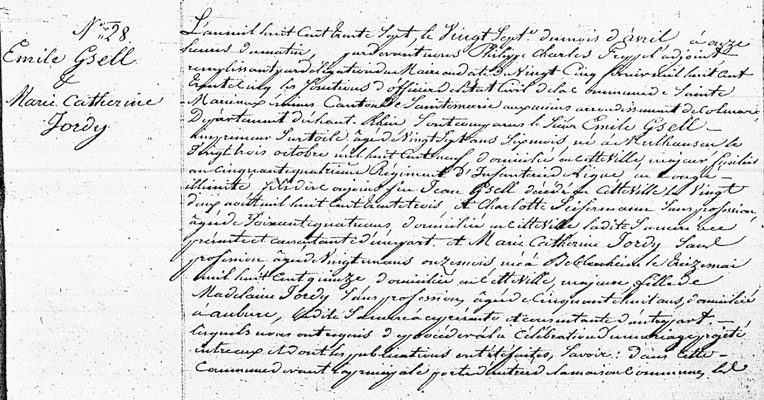 N.º 28.
Emile Gsell
&
Marie Catherine
Jordy
L'an mil huit Cent trente Sept, le Vingt Sept du mois d'avril à onze
heures du matin, pardevant nous Philippe Charles adjoint
remplissant par délégation du Maire en date du Vingt Cinq mil huit Cent
trente Cinq les fonctions d'officier de l'état Civil de la Commune de Sainte
Marie aux mines Canton de Sainte Marie aux mines arrondissement de Colmar
Département du haut-Rhin Sont comparus le Sieur Emile Gsell
imprimeur Sur toile âgé de Vingt Sept ans Six mois, né à Mulhausen le
Vingt trois octobre mil huit Cent neuf domicilié en cette Ville, majeur
au Cinquante quatrième Régiment d'Infanterie de ligne, en congé
illimité, fils de feu Jean Gsell décédé en Cette Ville le Vingt
deux août mil huit Cent trente trois et Charlotte Seifermann Sans profession
âgée de Soixante quatre ans, domiciliée en Cette Ville ladite Sa mère
présente et consentante d'une part et Marie Catherine Jordy Sans
profession âgée de Vingt un ans onze mois née à Beblenheim le treize mai
mil huit Cent quinze domiciliée en Cette Ville, majeure, fille de
Madelaine Jordy Sans profession, âgée de Cinquante huit ans, domiciliée
à aubure, ladite Sa mère à ce présente et consentante d'autre part.
lesquels nous ont requis de procéder à la Célébration du mariage projeté
entre eux et dont les publications ont été faites, Savoir: dans Cette
Commune devant la principale porte d'entrée de la maison Commune, les